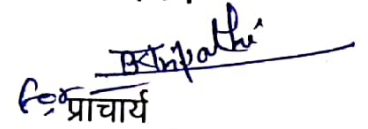 BKTripathi
For प्राचार्य